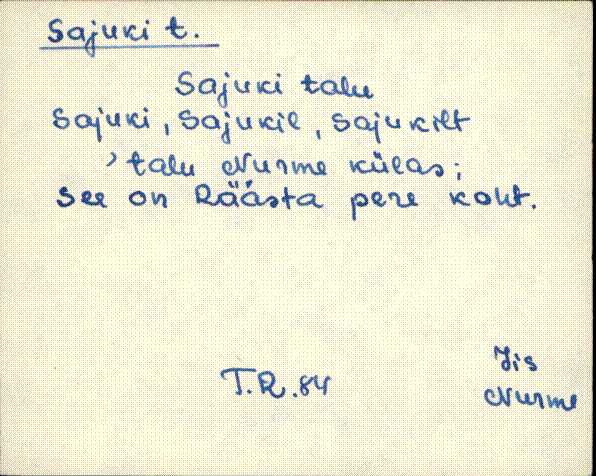 Sajuki t.
Sajuki talu
Sajuki, Sajukil, Sajukilt
'talu Nurme külas;
See on Räästa pere koht.
T.R.84
Jis
Nurme